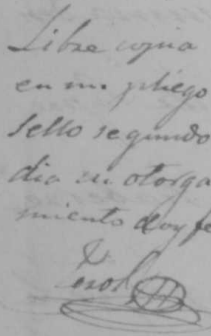 Libre copia
en un pliego
sello segundo
dia su otorga
miento doy fe